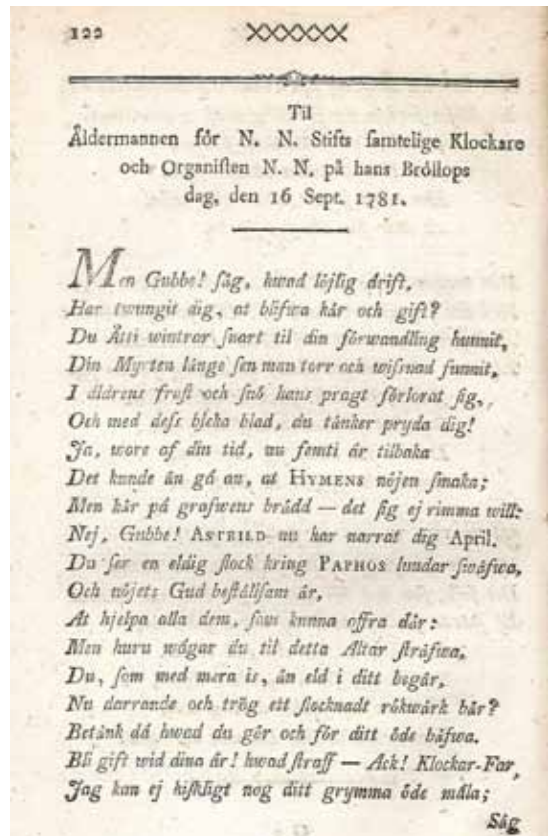 122
Til
Åldermannen för N. N. Stifts samtelige Klockare
och Organisten N. N. på hans Bröllops
dag, den 16 Sept. 1781.
Men Gubbe! såg, hwad löjlig drift,
Har twungit dig, at blifwa kår och gift?
Du Åtti wintrar snart til din förwandling hunnit,
Din Myrten långe sen man torr och wissnad funnit,
I åldrens frost och snö hans pragt förlorat sig,
Och med dess bleka blad, du tånker pryda dig!
Ja, wore af din tid, nu femti år tilbaka
Det kunde ån gå an, at HYMENS nöjen smaka;
Men hår på grafwens brådd — det sig ej rimma will:
Nej, Gubbe! ASTRILD nu har narrat dig April.
Du ser en eldig flock kring PAPHOS lundar swåfwa,
Och nöjets Gud beställsam år,
At hjelpa alla dem, som kunna offra dår:
Men huru wågar du til detta Altar stråfwa,
Du, som med mera is, ån eld i ditt begår,
Nu darrande och trög ett slocknadt rökwårk bår?
Betånk då hwad du gör och för ditt öde båfwa.
Bli gift wid dina år! hwad straff — Ack! Klockar-Far,
Jag kan ej hiskligt nog ditt grymma öde måla;
Såg